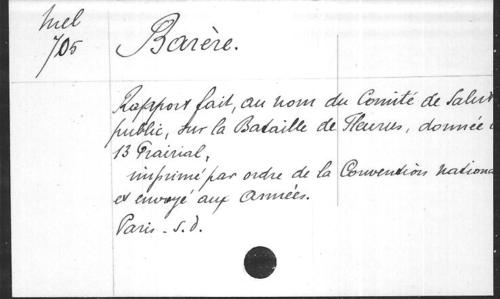 Mel
705
Barère.
Rapport fait, au nom du Comité de Salut
public, sur la Bataille de Fleurus, donnée
13 Prairial,
imprimé par ordre de la Convention nationa
et envoyé aux Armées.
Paris - s.d.